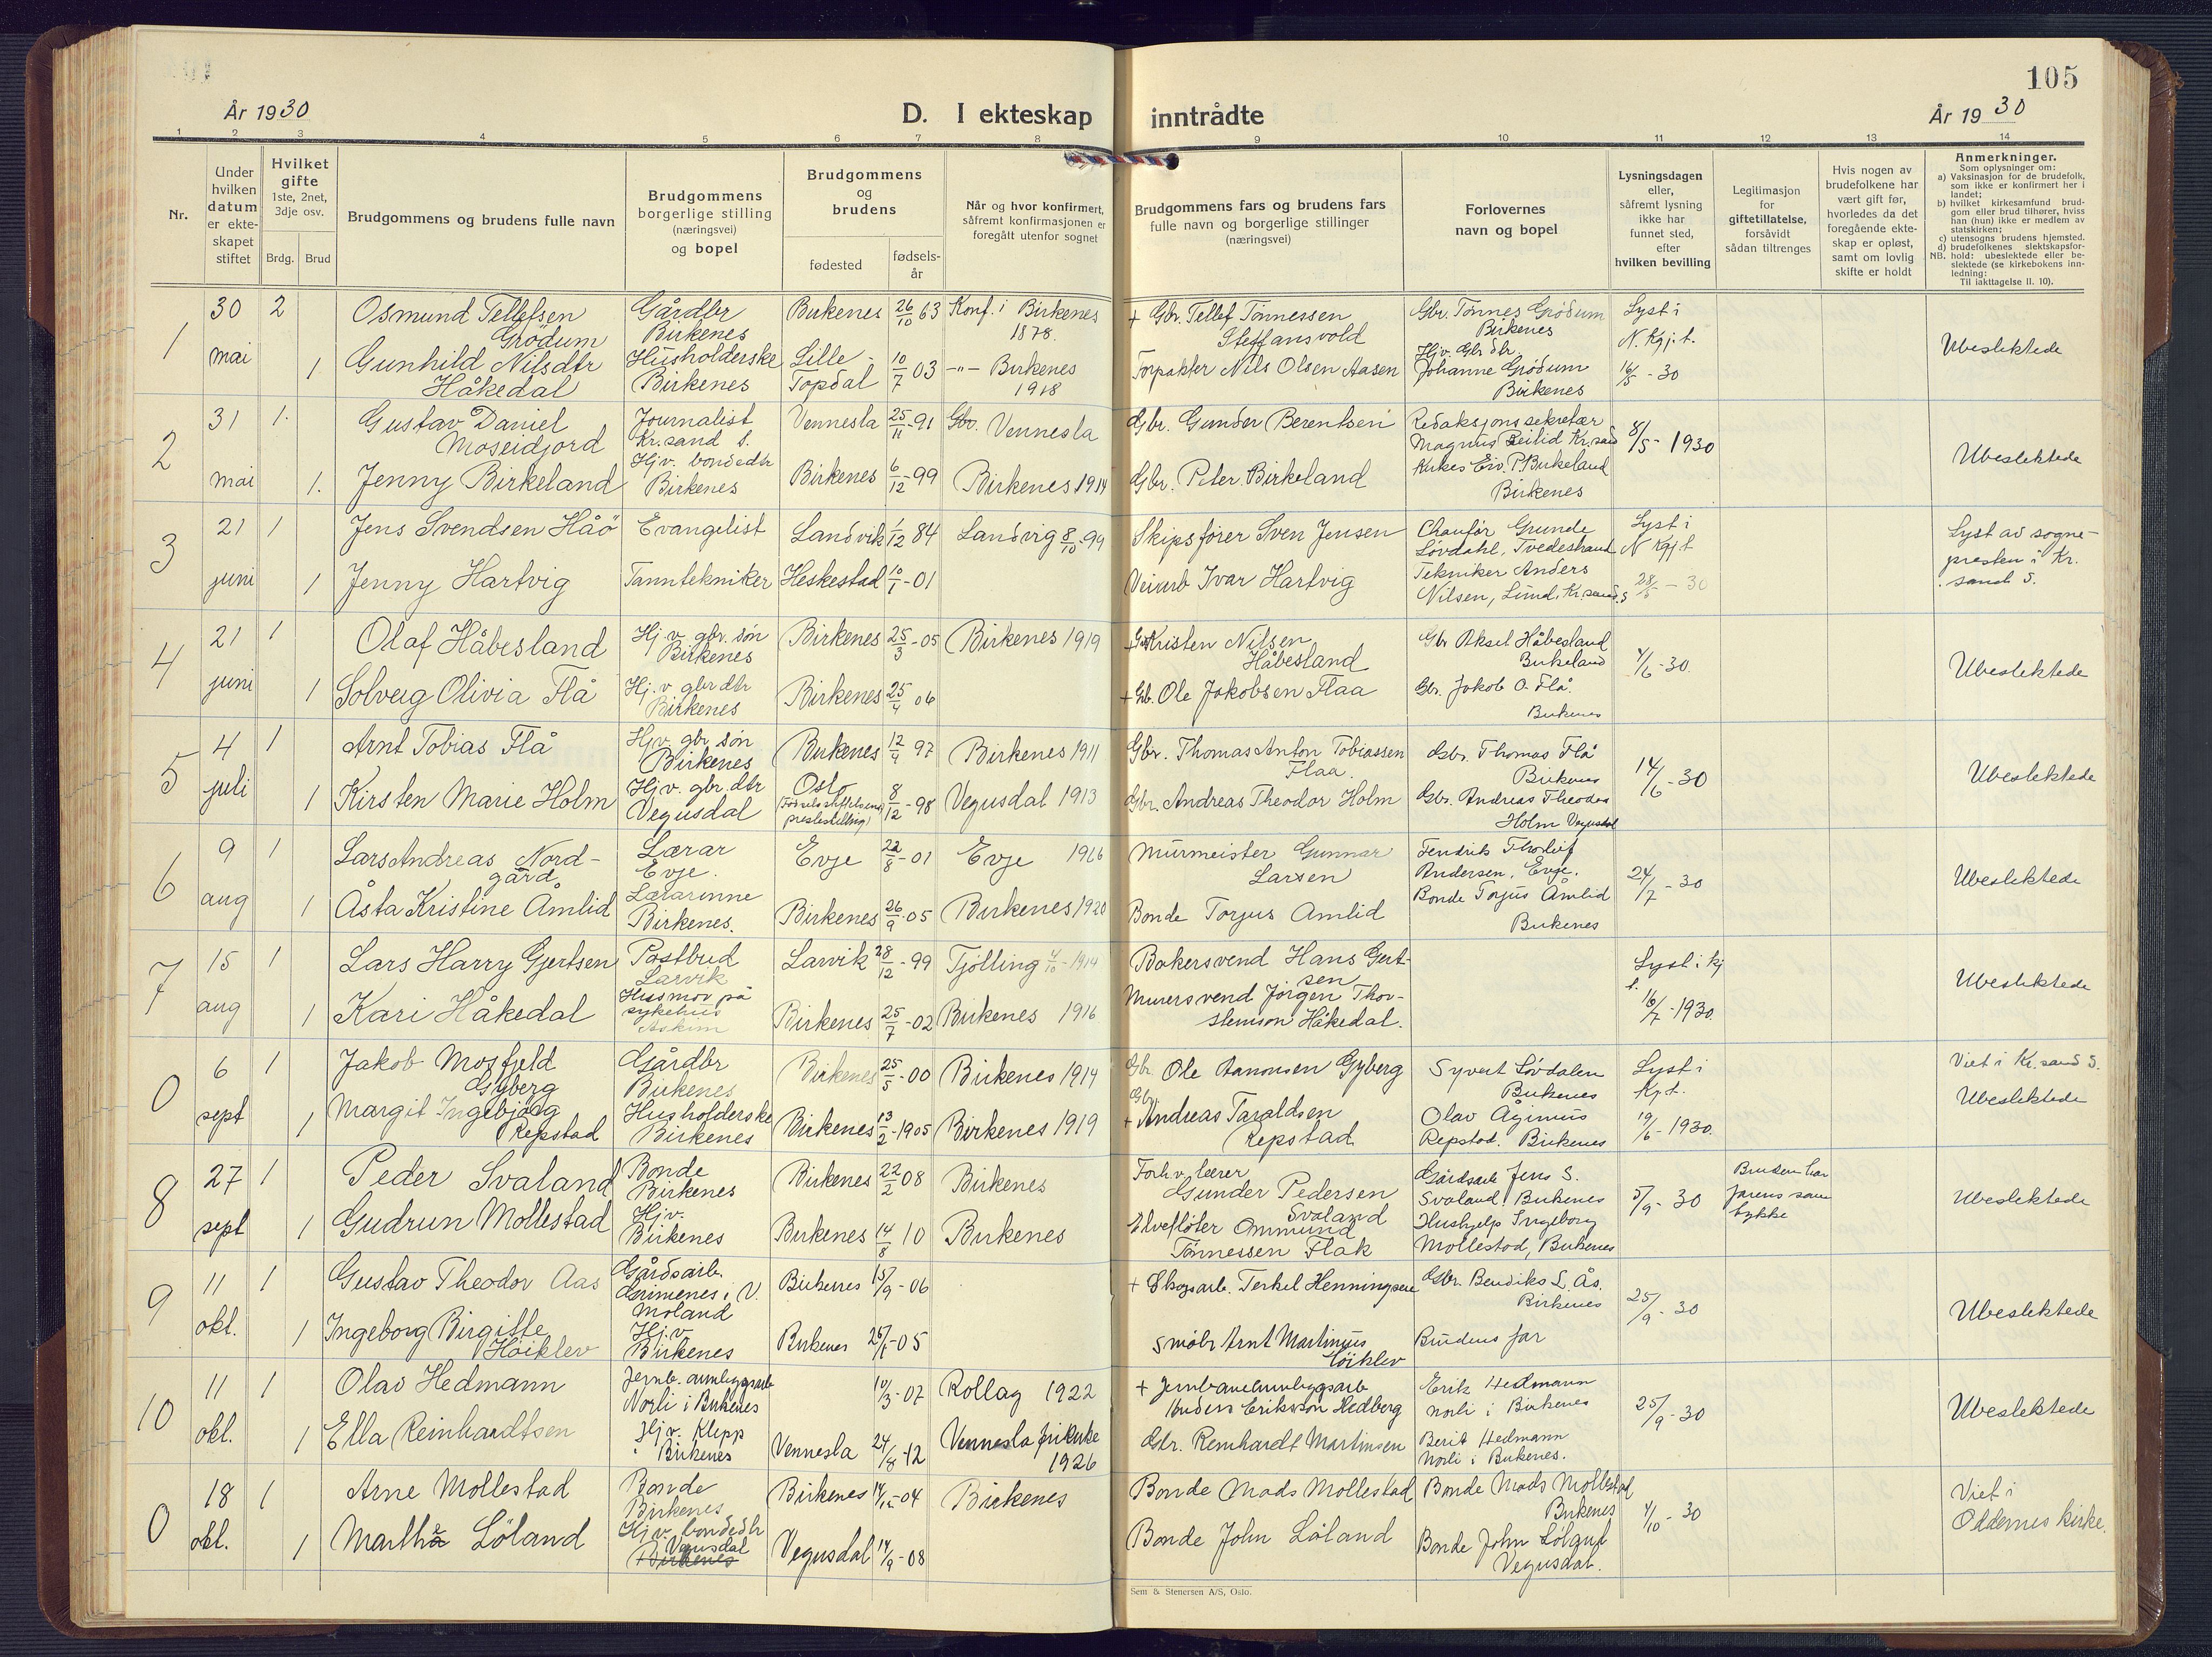 105
År 1930
D. I ekteskap inntrådte
År 1930
1 2 3 4 5 6 7 8 9 10 11 12 13 14
Nr.
Under hvilken datum er ekteskapet stiftet
Hvilket gifte 1ste, 2net, 3dje osv.
Brdg. Brud
Brudgommens og brudens fulle navn
Brudgommens borgerlige stilling (næringsvei) og bopel
Brudgommens og brudens
fødested
fødselsår
Når og hvor konfirmert, såfremt konfirmasjonen er foregått utenfor sognet
Brudgommens fars og brudens fars fulle navn og borgerlige stillinger (næringsvei)
Forlovernes navn og bopel
Lysningsdagen eller, såfremt lysning ikke har funnet sted, efter hvilken bevilling
Legitimasjon for giftetillatelse, forsåvidt sådan tiltrenges
Hvis nogen av brudefolkene har vært gift før, hvorledes da det foregående ekteskap er opløst, samt om lovlig skifte er holdt
Anmerkninger.
Som oplysninger om:
a) Vaksinasjon for de brudefolk, som ikke er konfirmert her i landet;
b) hvilket kirkesamfund brudgom eller brud tilhører, hviss han (hun) ikke er medlem av statskirken;
c) utensogns brudens hjemsted.
d) brudefolkenes slektskapsforhold: ubeslektede eller beslektede (se kirkebokens innledning:
NB.
Til iakttagelse II. 10).
1 30 mai 2 Osmund Tellefsen Grödum Gårdbr Birkenes Birkenes 26/10 63 Konf. i Birkenes 1878. + Gbr. Tellef Tönnessen Steffansvold Gbr. Tönnes Grödum Birkenes Lyst i N. Kgj. t. 16/5 - 30 Ubeslektede
1 Gunhild Nilsdtr Håkedal Husholderske Birkenes Lille-Topdal 10/7 03 -"- Birkenes 1918 Forpakter Nils Olsen Aasen Hjv. Gbrdtr. Johanne Grödum Birkenes
2 31 mai 1. Gustav Daniel Moseidjord Journalist Kr.sand S. Vennesla 25/11-91 Vennesla Gbr. Gunder Berentsen Redaksjonssekretær Magnus Kr.sand 8/5- 1930 Ubeslektede
1. Jenny Birkeland Hjv. bondedtr Birkenes Birkenes 6/12-99 Birkenes 1914 Gbr. Peter Birkeland P. Birkeland Birkenes
3 21 juni 1 Jens Svendsen Håö Evangelist Landvik 1/12 84 Landvig 8/10-99 Skipsförer Sven Jensen Chauför Grunde Lövdahl, Tvedestrand Lyst i N Kgj t 28/5 - 30 Lyst av sognepresten i Kr.sand S.
1 Jenny Hartvig Tanntekniker Heskestad 10/1-01 Veiarb Ivar Hartvig Tekniker Anders Nilsen, Lund, Kr.sand S
4 21 juni 1 Olaf Håbesland Hj. v. gbr. sön Birkenes Birkenes 25/3-05 Birkenes 1919 + Kristen Nilsen Håbesland Gbr Aksel Håbesland Birkeland 4/6-30. Ubeslektede
1 Solveig Olivia Flå Hj. v. gbr dtr Birkenes Birkenes 25/4 06 + Gb. Ole Jakobsen Flaa Gbr. Jakob O. Flå. Birkenes
5 4 juli 1 Arnt Tobias Flå Hjv gbr sön Birkenes Birkenes 12/4 97 Birkenes 1911 Gbr. Thomas Anton Tobiassen Flaa. Gbr. Thomas Flå Birkenes 14/6-30 Ubeslektede
1 Kirsten Marie Holm Hj. v. gbr. dtr Vegusdal Oslo 8/12-98 Vegusdal 1913 Gbr. Andreas Theodor Holm Gbr. Andreas Theodor Holm Vegusdal
6 9 aug 1 Lars Andreas Nordgård Lærar Evje. Evje 22/8-01 Evje 1916 Murmeister Gunnar Larsen Fendrik Thorleif Andersen, Evje. 24/7-30 Ubeslektede
1 Åsta Kristine Åmlid Lærarinne Birkenes. Birkenes 26/9.05 Birkenes 1920 Bonde Torjus Åmlid Bonde Torjus Åmlid Birkenes
7 15 aug 1 Lars Harry Gjertsen Postbud Larvik Larvik 28/12-99 Tjölling 4/10-1914 Bakersvend Hans Gertsen Lyst i kj t. 16/7-1930. Ubeslektede
1 Kari Håkedal Husmor på sykehus Askim Birkenes 25/7-02 Birkenes 1916 Murersvend Jörgen Thorsteinson Håkedal.
0 6 sept 1 Jakob Mosfjeld Gyberg Gårdbr Birkenes Birkenes 25/5-00 Birkenes 1914 Gbr. Ole Aanonsen Gyberg Syvert Lövdalen Birkenes Lyst i Kj. t. 19/6-1930. Viet i Kr.sand S. Ubeslektede
1 Margit Ingebjörg Repstad Husholderske Birkenes Birkenes 13/2-1905 Birkenes 1919 Gbr. + Andreas Taraldsen Repstad Olav Åginus Repstad. Birkenes
8 27 sept 1 Peder Svaland Bonde Birkenes Birkenes 22/2 08 Birkenes Forh.v. lærer Gunder Pedersen Svaland Gårdsarb Jens S. Svaland Birkenes 5/9-30 Bruden har farens samtykke Ubeslektede
1 Gudrun Mollestad Hjv. Birkenes Birkenes 14/8 10 Birkenes Elvefløter Ommund Tönnessen Flak Hushjelp Ingeborg Mollestad, Birkenes
9 11 okt. 1 Gustav Theodor Aas Gårdsarb. Grimenes i V. Moland Birkenes 15/9-06 + Skogsarb. Terkel Henningsen Gbr. Bendiks L. Ås. Birkenes 25/9-30 Ubeslektede
1 Ingeborg Birgitte Höiklev Hj.v. Birkenes Birkenes 26/1-05 Småbr Arnt Martinius Höiklev Brudens far
10 11 okt. 1 Olav Hedmann Jernb. anleggsarb Norli i Birkenes 10/3-07 Rollag 1922 + Jernbaneanleggsarb Anders Eriksson Hedberg Erik Hedmann Norli i Birkenes 25/9-30 Ubeslektede
1 Ella Reinhardtsen Hj v. Klepp i Birkenes Vennesla 24/8-12 Vennesla frikirke 1926 Gbr. Reinhardt Martinsen Berit Hedmann Norli i Birkenes.
0 18 okt. 1 Arne Mollestad Bonde Birkenes Birkenes 14/12-04 Birkenes Bonde Mads Mollestad Bonde Mads Mollestad Birkenes 4/10-30 Viet i Oddernes kirke.
1 Martha Löland Hjv. bondedtr Vegusdal Birkenes Vegusdal 14/9-08 Bonde John Löland Bonde John Löland Vegusdal.
Sem & Stenersen A/S, Oslo.